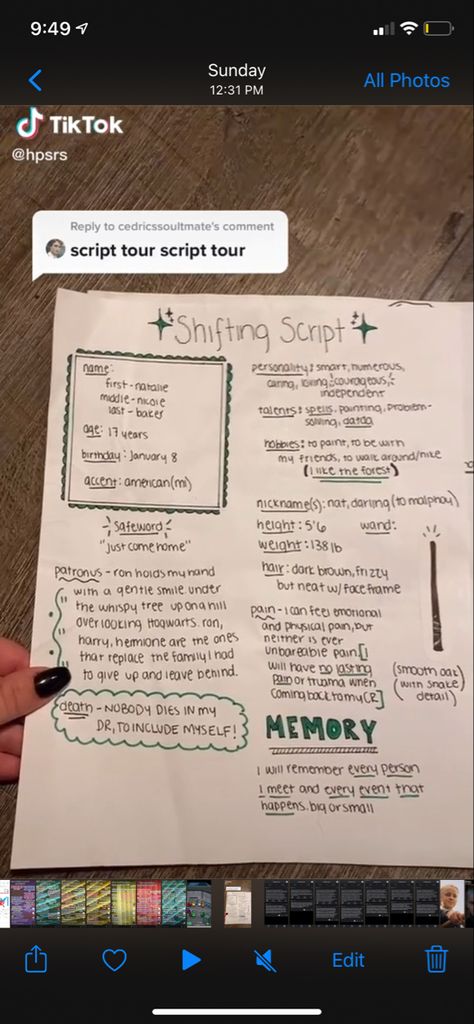 9:49
Sunday
12:31 PM
All Photos
TikTok
@hpsrs
Reply to cedricssoultmate's comment
script tour script tour
Shifting Script
name:
first-natalie
middle-nicole
last-baker
age: 17 years
birthday: January 8
accent: american(mi)
safeword
"just come home"
patronus - ron holds my hand
with a gentle smile under
the whispy tree up on a hill
overlooking Hogwarts. ron,
harry, hermione are the ones
that replace the family I had
to give up and leave behind.
death - NOBODY DIES IN MY
DR, TO INCLUDE MYSELF!
personality: smart, humerous,
caring, loving, courageous,
independent
talents: spells, painting, problem-
solving,
hobbies: to paint, to be with
my friends, to walk around/hike
(I like the forest)
nickname(s): nat, darling (to malphoy)
height: 5'6
wand:
weight: 138 lb
hair: dark brown, frizzy
but neat w/ face frame
pain - I can feel emotional
and physical pain, but
neither is ever
unbareable pain[
will have no lasting
pain or trauma when
coming back to my CR]
(smooth oak)
(with snake
detail)
MEMORY
I will remember every person
I meet and every event that
happens. big or small
Edit